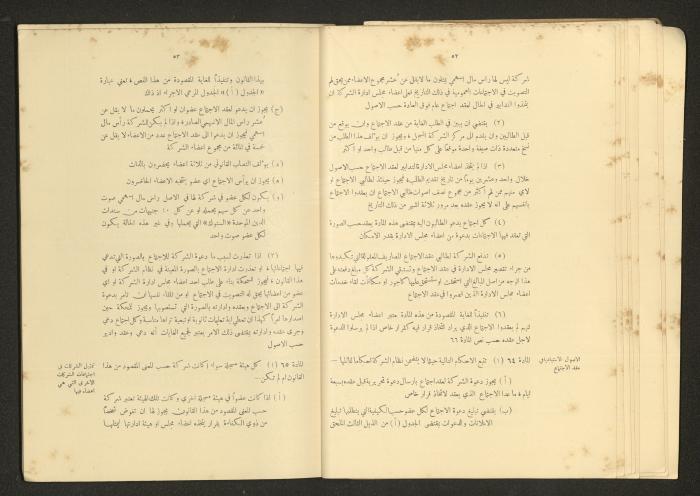 ٥٢
شركة ليس لها رأس مال اسهمي يمثلون ما لا يقل عن عشر مجموع الاعضاء ممن يحق لهم
التصويت في الاجتماعات العمومية في ذلك التاريخ فعلى اعضاء مجلس ادارة الشركة ان
يتخذوا التدابير في الحال لعقد اجتماع عام فوق العادة حسب الاصول
(٢) يقتضي ان يبين في الطلب الغاية من عقد الاجتماع وان يوقع من
قبل الطالبين وان يقدم الى مركز الشركة المسجل ويجوز ان يؤلف هذا الطلب من
نسخ متعددة ذات صيغة واحدة موقعاً على كل منها من قبل طالب واحد او اكثر
(٣) اذا لم يتخذ اعضاء مجلس الادارة التدابير لعقد الاجتماع حسب الاصول
خلال واحد وعشرين يوماً من تاريخ تقديم الطلب فيجوز حينئذ لطالبي الاجتماع او
لاي منهم ممن لهم اكثر من مجموع نصف اصوات طالبي الاجتماع ان يعقدوا الاجتماع
بانفسهم على انه لا يجوز عقده بعد مرور ثلاثة اشهر من ذلك التاريخ
(٤) كل اجتماع يدعو الطالبون اليه بمقتضى هذه المادة يعقد حسب الصورة
التي تعقد فيها الاجتماعات بدعوة من اعضاء مجلس الادارة بقدر الامكان
(٥) تدفع الشركة لطالبي عقد الاجتماع المصاريف المعقولة التي تكبدوها
من جراء تقصير مجلس الادارة في عقد الاجتماع وتستبقي الشركة كل مبلغ دفعته على
هذا الوجه من اصل المبالغ التي استحقت او ستستحق عليها كأجور او مكافآت لقاء خدمات
اعضاء مجلس الادارة الذين قصروا في عقد الاجتماع
(٦) تنفيذاً للغاية المقصودة من هذه المادة يعتبر اعضاء مجلس الادارة
انهم لم يعقدوا الاجتماع الذي يراد اتخاذ قرار فيه كقرار خاص اذا لم يرسلوا الدعوة
لاجل عقده حسب نص المادة ٦٦
الاصول الاستبدادية في
عقد الاجتماع
المادة ٦٤ (١) تتبع الاحكام التالية حيثما لا يتضمن نظام الشركة احكاماً تماثلها —
(أ) يجوز دعوة الشركة لعقد اجتماع بارسال دعوة تحريرية قبل عقده بسبعة
ايام ما عدا الاجتماع الذي يعقد لاتخاذ قرار خاص
(ب) يقتضي تبليغ دعوة الاجتماع لكل عضو حسب الكيفية التي يتطلبها تبليغ
الاعلانات والدعوات بمقتضى الجدول (أ) من الذيل الثالث الملحق
٥٣
بهذا القانون وتنفيذاً للغاية المقصودة من هذا النص تعني عبارة
«الجدول (أ)» الجدول المرعي الاجراء اذ ذاك
(ج) يجوز ان يدعو لعقد الاجتماع عضوان او اكثر يحملون ما لا يقل عن
عشر رأس المال الاسهمي الصادر واذا لم يكن للشركة رأس مال
اسهمي يجوز ان يدعو الى عقد الاجتماع عدد من الاعضاء لا يقل عن
خمسة في المائة من مجموع اعضاء الشركة
(د) يؤلف النصاب القانوني من ثلاثة اعضاء يحضرون بالذات
(ه) يجوز ان يرأس الاجتماع اي عضو ينتخبه الاعضاء الحاضرون
(و) يكون لكل عضو في شركة لها في الاصل رأس مال اسهمي صوت
واحد عن كل سهم يحمله او عن كل ١٠ جنيهات من سندات
الدين الموحدة «الستوك» التي يحملها وفي غير هذه الحالة يكون
لكل عضو صوت واحد
(٢) اذا تعذرت لسبب ما دعوة الشركة للاجتماع بالصورة التي تدعى
فيها اجتماعاتها او تعذرت ادارة الاجتماع بالصورة المعينة في نظام الشركة او في
هذا القانون فيجوز للمحكمة بناء على طلب احد اعضاء مجلس ادارة الشركة او اي
عضو من اعضائها يحق له التصويت في الاجتماع او من تلقاء نفسها ان تأمر بدعوة
الشركة الى الاجتماع وبعقده وادارته بالصورة التي تستصوبها ويجوز للمحكمة حين
اصدارها امراً كهذا ان تعطي اية تعليمات ثانوية او تبعية تراها مناسبة وكل اجتماع دعي
وجرى عقده وادارته بمقتضى ذلك الامر يعتبر لجميع الغايات انه دعي وعقد وادير
حسب الاصول
تمثيل الشركات في
اجتماعات الشركات
الاخرى التي هي
اعضاء فيها
المادة ٦٥ (١) كل هيئة مسجلة سواء اكانت شركة حسب المعنى المقصود من هذا
القانون ام لم تكن —
(أ) اذا كانت عضواً في هيئة مسجلة اخرى وكانت تلك الهيئة تعتبر شركة
حسب المعنى المقصود من هذا القانون يجوز لها ان تفوض شخصاً
من ذوي الكفاءة بقرار يتخذه اعضاء مجلس او هيئة ادارتها ليمثلها